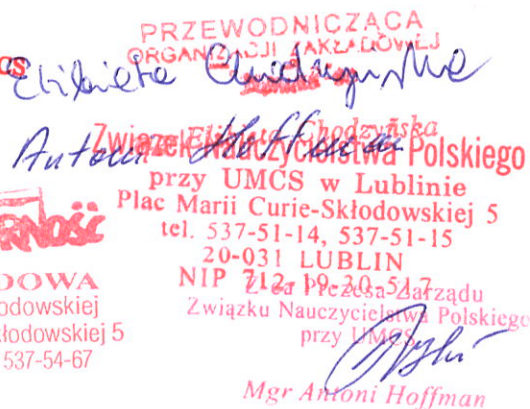 PRZEWODNICZĄCA
ORGANIZACJI ZAKŁADOWEJ
Elżbieta Chodzyńska
Elżbieta Chodzyńska
Antoni Hoffman
Związek Nauczycielstwa Polskiego
przy UMCS w Lublinie
Plac Marii Curie-Skłodowskiej 5
tel. 537-51-14, 537-51-15
20-031 LUBLIN
NIP 712-19-20-517
Z-ca Prezesa Zarządu
Związku Nauczycielstwa Polskiego
przy UMCS
Mgr Antoni Hoffman
RNOŚĆ
DOWA
odowskiej
kłodowskiej 5
537-54-67